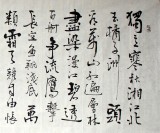 獨立寒秋湘江北
去橘子洲頭
看萬山紅遍層林
盡染漫江碧透
百舸爭流鷹擊
長空魚翔淺底萬
類霜天競自由悵